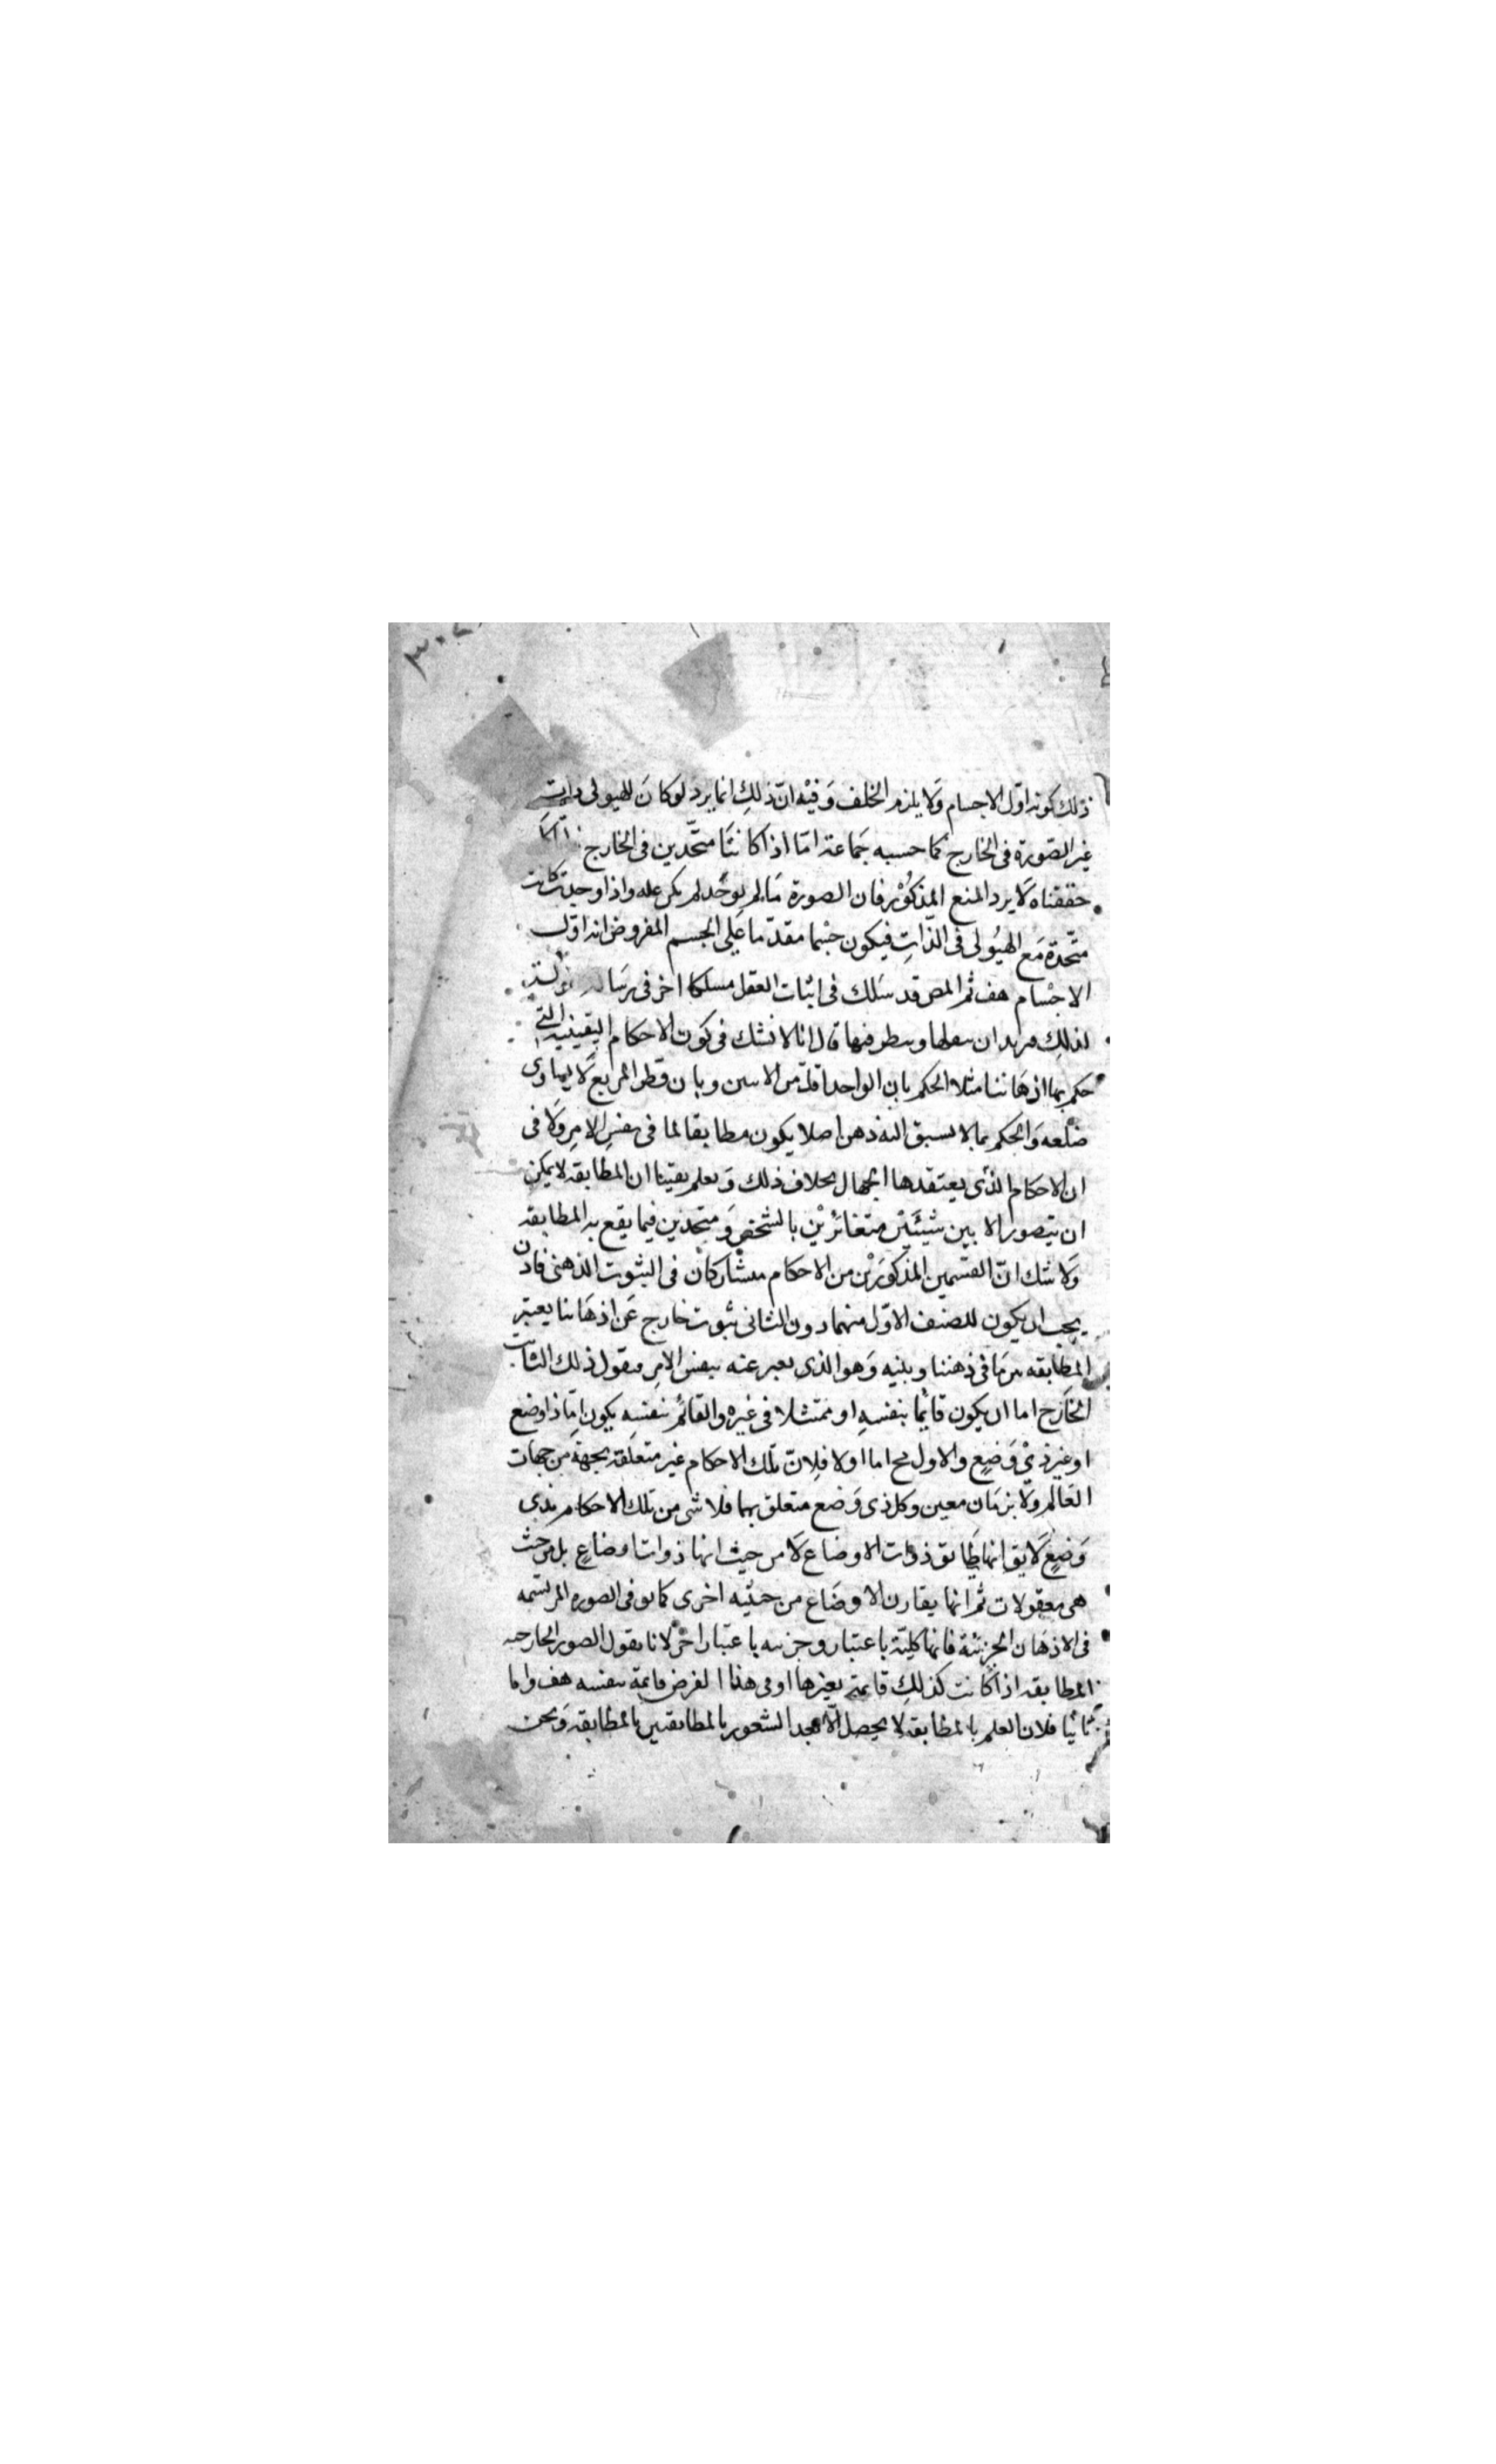 ذلك كونه اوّل الاجسام وَلا يلزم الخلف وَفيْه انّ ذلك انما يرد لو كانَ للهيولى ذات
غير الصّورة فى الخارج كما حسبه جَماعة امّا اذا كانتَا متّحدين فى الخارج كما
حققناه لَا يرد المنع المذكوْر فان الصورة مَا لم يوجَد لم يكن عله واذا وجدت كانت
متّحدة مَع الهيُولى فى الذّاتِ فيكون جسْما مقدّما عَلى الجسم المفروض انه اوّل
الاجْسام هف ثم المص قد سَلك فى اثبات العقل مسلكا اخر فى رسَالة
لذلِك نريد ان ننقلها وننظر فيها قال انا لا نشك فى كوَن الاحكام اليقينيه التى
حكم بها اذهَاننا مثلا الحكم بان الواحد اقلّ من الاسن وبان قطر المربع لَا يساوى
ضلعه وَالحكم بما لا يسبق اليه ذهن اصلا يكون مطابقا لما فى نفسِ الامر وَلا فى
ان الاحكام الذى يعتقدها الجهال بخلاف ذلك وَنعلم يقينا ان المطابقه لا يمكن
ان يتصور الا بين شيئيَن متغائرَيْن بالشخص وَمتحدين فيما يقع به المطابقه
وَلا شك انّ القسمين المذكورَيْن من الاحكام متشاركان فى الثبوت الذهنى فاذن
يجب ان يكون للصنف الاوّل منهما دون الثانى ثبوت خارج عَن اذهَاننا يعتبر
المطابقه بين مَا فى ذهننا وبينه وَهو الذى يعبر عنه بنفس الامر فنقول ذلك الثابت
الخارَج اما ان يكون قائما بنفسهِ او متمثلا فى غيره والقائم بنفسِه يكون امّا ذا وضع
او غير ذيْ وَضعٍ والاول مح اما اولا فلِانّ تلك الاحكام غير متعلقه بجهة من جهات
العَالم وَلَا بزمَان معين وكل ذى وَضع متعلق بهما فلا شى من تلك الاحكام بذى
وَضعٍ لَا يق انها يطابق ذوات الاوضاع لَا من حيث انها ذوات اوضاعٍ بل من حيث
هى معقولات ثم انها يقارن الاوضَاع من حيثيه اخرى كما يق فى الصوره المرتسمه
فى الاذهَان الجزيئة فانها كليّة باعتبار وجزئيه باعتبار اخْر لانا نقول الصور الخارجيه
المطابقه اذا كانت كذلِك قائمة بغيرها او فى هذا الفرض قائمة بنفسه هف واما
ثانيا فلان العلم بالمطابقه لا يحصل الّا بعد الشعور بالمطابقين بالمطابقه وَنحن